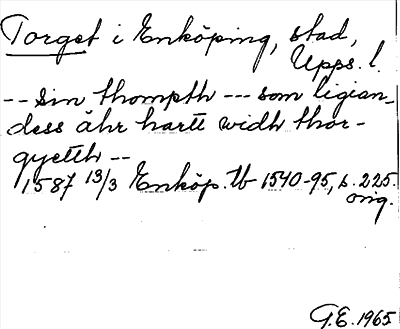 Torget i Enköping, stad,
Upps. l.
-- sin thompth --- som ligian_
dess ähr hartt widh thor-
gyetth --
1587 13/3 Enköp. Tb 1540-95, s. 225.
orig.
G.E. 1965